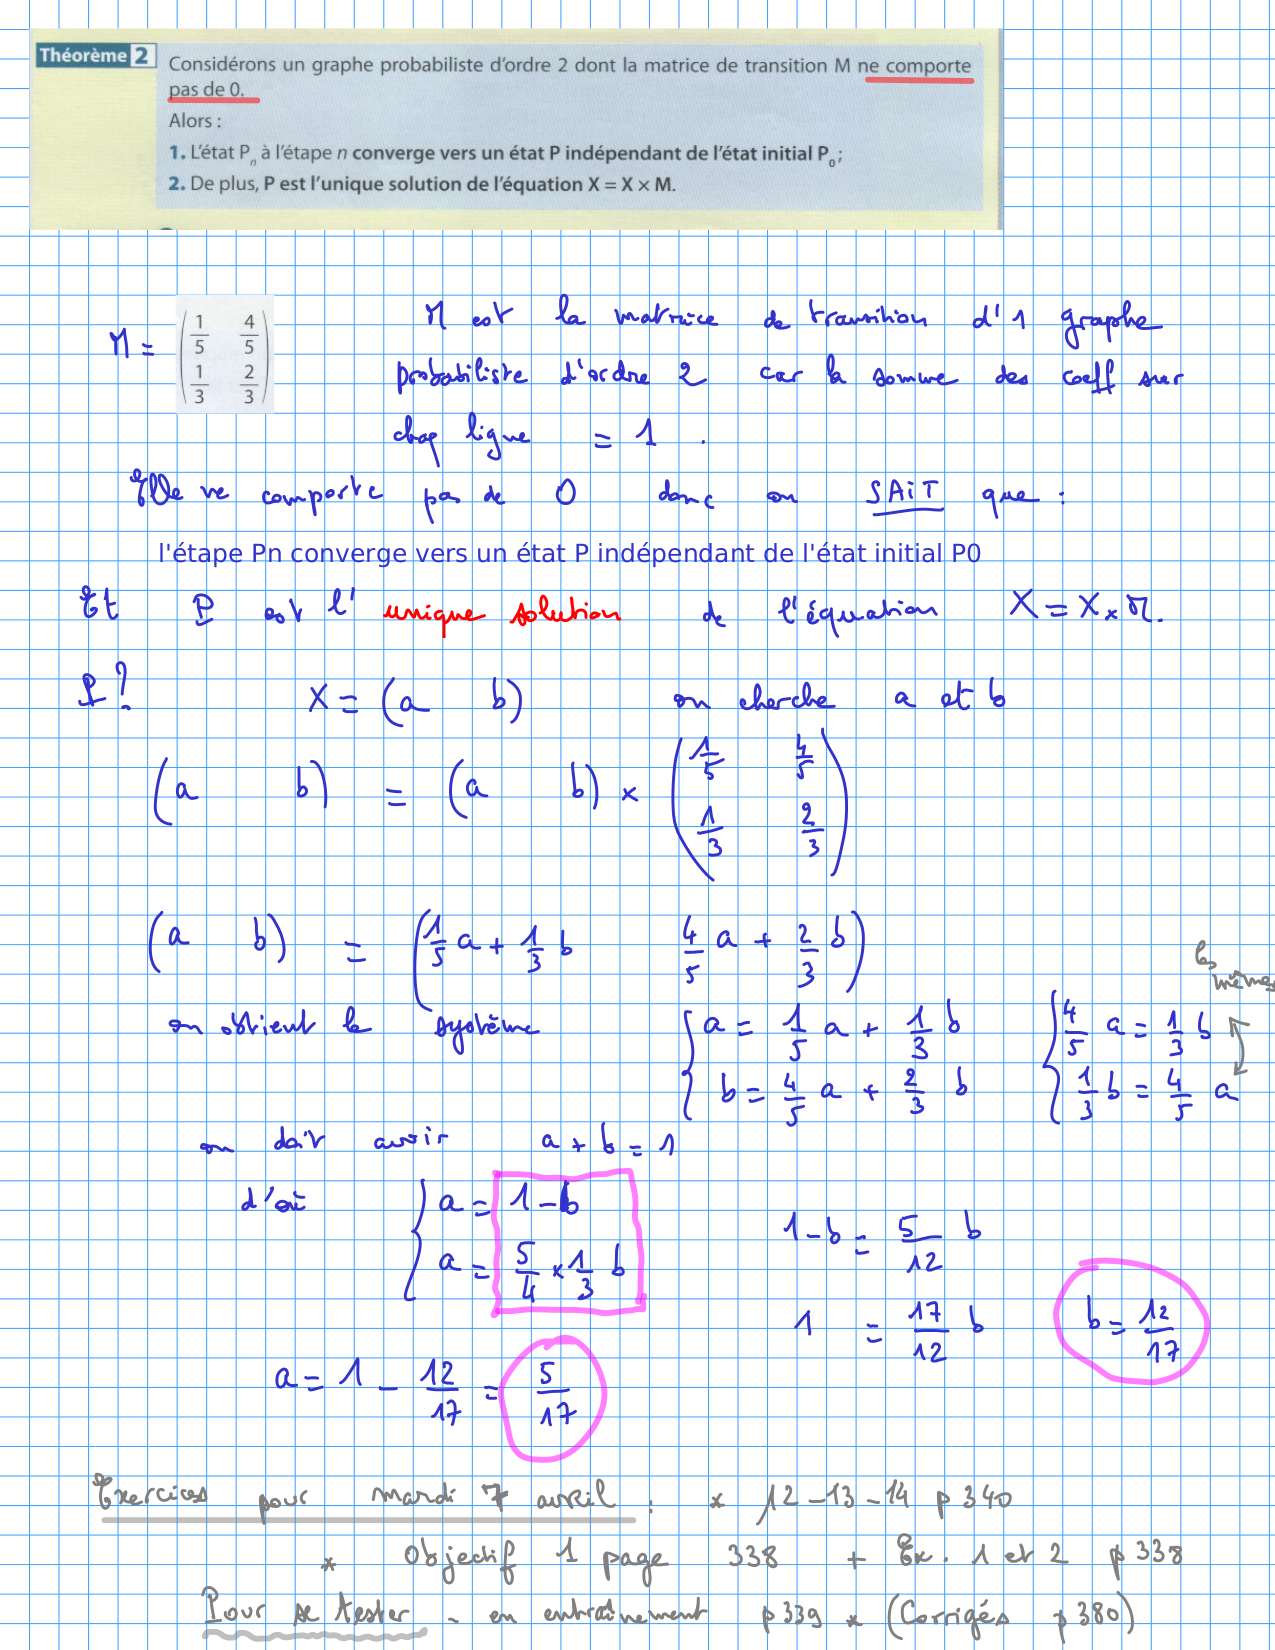 Théorème 2 Considérons un graphe probabiliste d'ordre 2 dont la matrice de transition M ne comporte
pas de 0.
Alors :
1. L'état Pn à l'étape n converge vers un état P indépendant de l'état initial P0 ;
2. De plus, P est l'unique solution de l'équation X = X × M.
M = (1/5 4/5
1/3 2/3)
M est la matrice de transition d'1 graphe
probabiliste d'ordre 2 car la somme des coeff sur
chaq ligne = 1 .
Elle ne comporte pas de 0 donc on SAiT que :
l'étape Pn converge vers un état P indépendant de l'état initial P0
Et P est l' unique solution de l'équation X = X × M.
P ? X = (a b) on cherche a et b
(a b) = (a b) × (1/5 4/5
1/3 2/3)
(a b) = (1/5 a + 1/3 b 4/5 a + 2/3 b)
les
mêmes
on obtient le système { a = 1/5 a + 1/3 b { 4/5 a = 1/3 b
b = 4/5 a + 2/3 b 1/3 b = 4/5 a
on doit avoir a + b = 1
d'où { a = 1 - b
a = 5/4 × 1/3 b
1 - b = 5/12 b
1 = 17/12 b b = 12/17
a = 1 - 12/17 = 5/17
Exercices pour mardi 7 avril : * 12 - 13 - 14 p 340
* Objectif 1 page 338 + Ex. 1 et 2 p 338
Pour se tester - en entraînement p 339 * (Corrigés p 380)